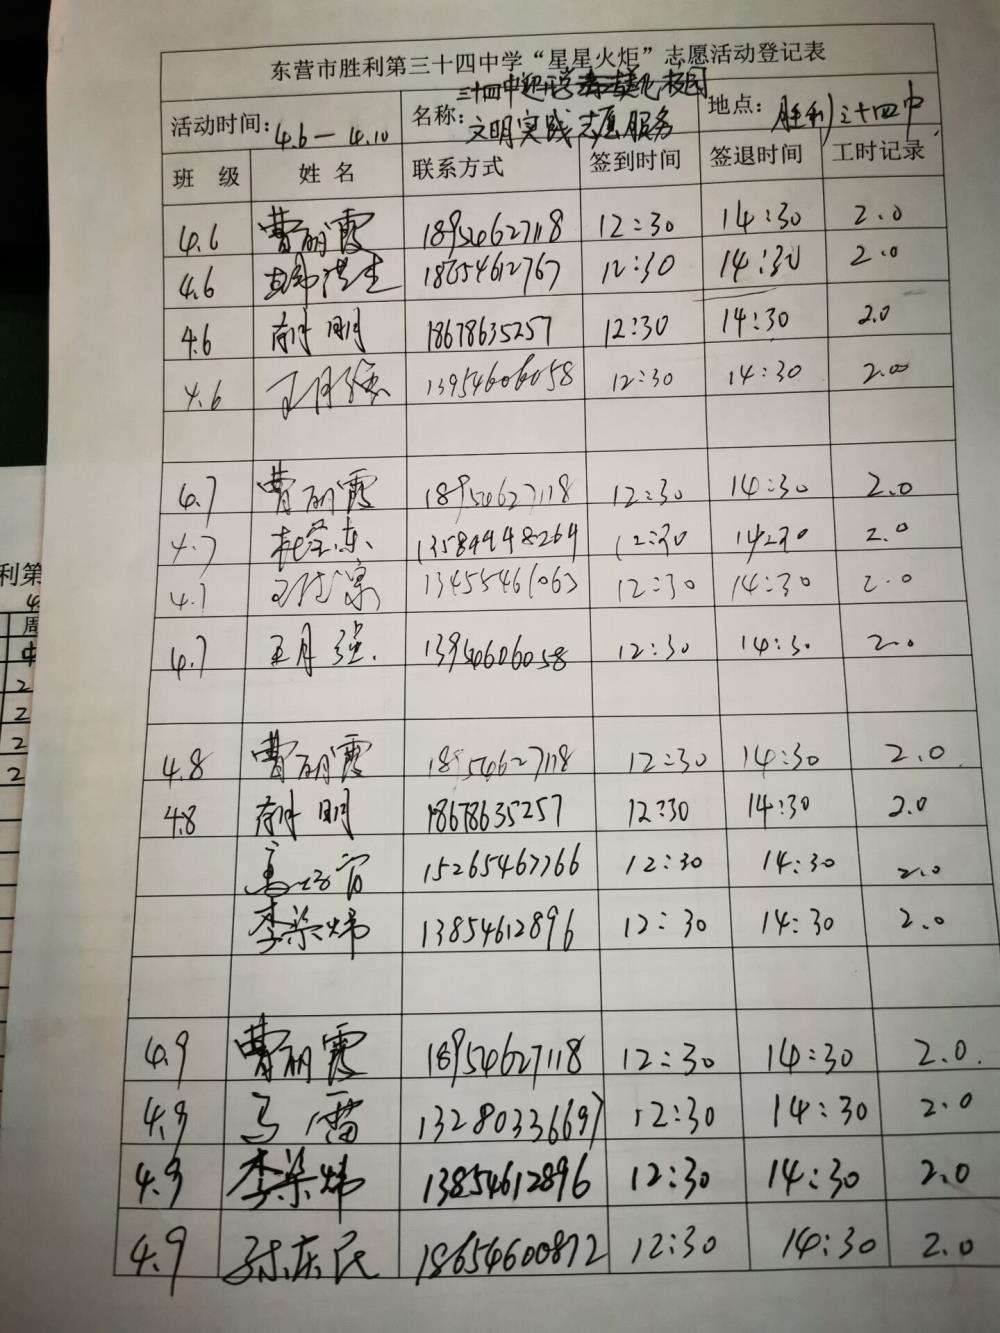 东营市胜利第三十四中学“星星火炬”志愿活动登记表
活动时间: 4.6—4.10 名称: 三十四中 校园 文明实践志愿服务 地点: 胜利三十四中
班 级 姓 名 联系方式 签到时间 签退时间 工时记录
4.6 曹丽霞 18954627118 12:30 14:30 2.0
4.6 18654612767 12:30 14:30 2.0
4.6 明 18678635257 12:30 14:30 2.0
4.6 王月强 13954606058 12:30 14:30 2.00
4.7 曹丽霞 18954627118 12:30 14:30 2.0
4.7 东 13589948264 12:30 14:30 2.0
4.7 13455461063 12:30 14:30 2.0
4.7 王月强 13954606058 12:30 14:30 2.0
4.8 曹丽霞 18954627118 12:30 14:30 2.0
4.8 明 18678635257 12:30 14:30 2.0
15265467766 12:30 14:30 2.0
李梁炜 13854612896 12:30 14:30 2.0
4.9 曹丽霞 18954627118 12:30 14:30 2.0
4.9 马雷 13280333669 12:30 14:30 2.0
4.9 李梁炜 13854612896 12:30 14:30 2.0
4.9 庆民 18654600872 12:30 14:30 2.0
利第
周
中
2
2
2
2